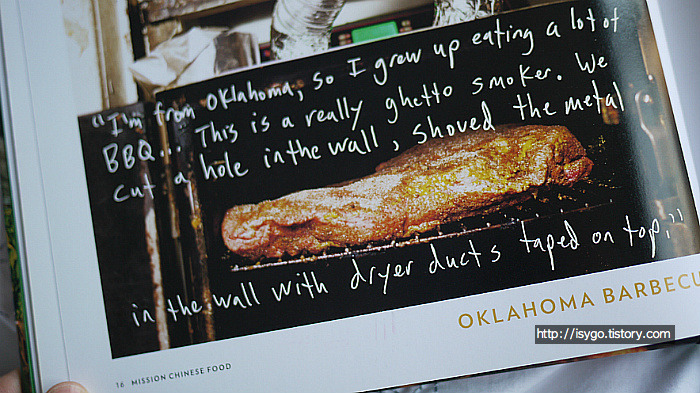 "I'm from Oklahoma, so I grew up eating a lot of
BBQ... This is a really ghetto smoker. We
cut a hole in the wall, shoved the metal
in the wall with dryer ducts taped on top."
OKLAHOMA BARBECU
http://isygo.tistory.com
16 MISSION CHINESE FOOD